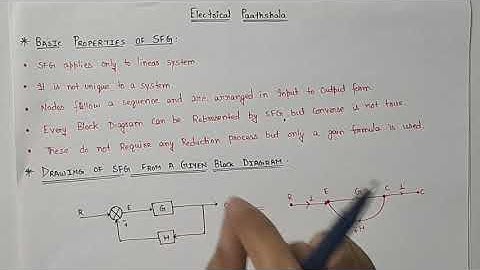 Electrical Paathshala
* BASIC PROPERTIES OF SFG:
• SFG applies only to linear system.
• It is not unique to a system.
• Nodes follow a sequence and are arranged in Input to Output form.
• Every Block Diagram can be Represented by SFG, but Converse is not true.
• These do not Require any Reduction process but only a gain formula is used.
* DRAWING OF SFG FROM A GIVEN BLOCK DIAGRAM:
R E G
H
R 1 E G C 1 C
H